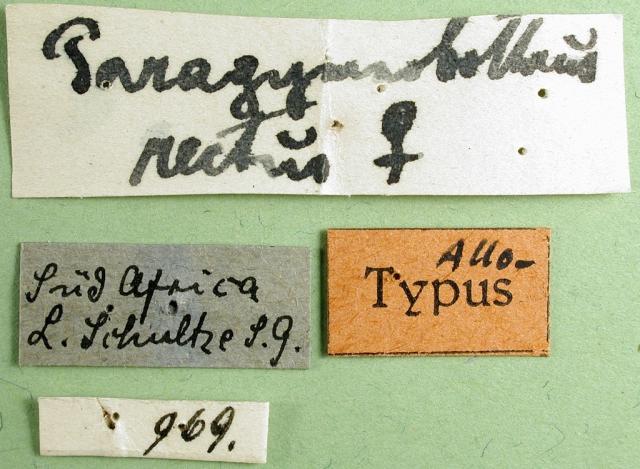 Paragymnobothrus
rectus ♀
Süd Africa
L. Schultze S.G.
Allo-
Typus
969.